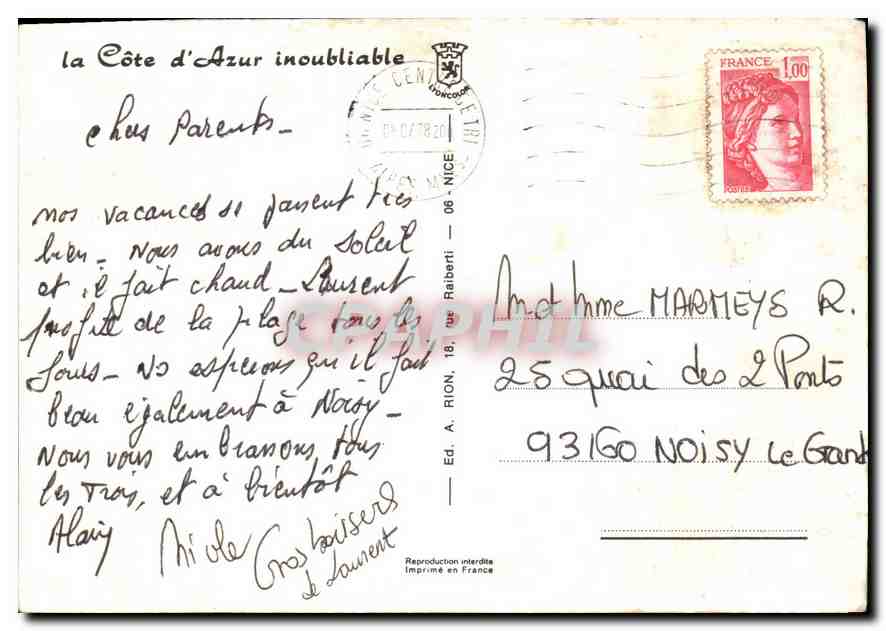 la Côte d'Azur inoubliable
LYONCOLOR
FRANCE 1,00
POSTES
NICE CENTRE
chers Parents_
nos vacances se passent très
bien_ Nous avons du soleil
et il fait chaud_ Laurent
profite de la plage tous les
Jours_ Ns espérons qu'il fait
beau également à Noisy_
Nous vous embrassons, tous
les Trois, et à bientôt
Alain
Nicole
Gros baisers
de Laurent
Ed. A. RION, 18, rue Raiberti — 06 - NICE
M et Mme MARMEYS R.
25 quai des 2 Ponts
93160 NOISY Le Grand
Reproduction interdite
Imprimé en France
CPAPHIL